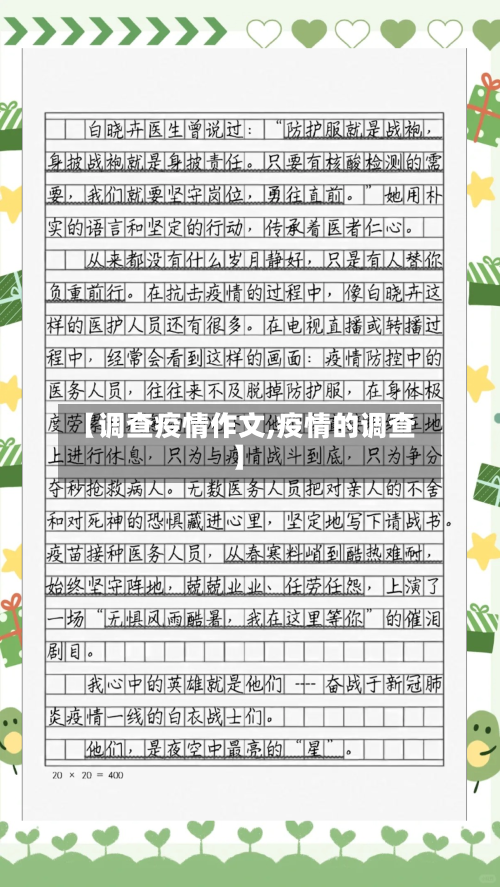 白晓卉医生曾说过：“防护服就是战袍，
身披战袍就是身披责任。只要有核酸检测的需
要，我们就要坚守岗位，勇往直前。”她用朴
实的语言和坚定的行动，传承着医者仁心。
从来都没有什么岁月静好，只是有人替你
负重前行。在抗击疫情的过程中，像白晓卉这
样的医护人员还有很多。在电视直播或转播过
程中，经常会看到这样的画面：疫情防控中的
医务人员，往往来不及脱掉防护服，在身体极
度劳
【调查疫情作文,疫情的调查
】
地
上进行休息，只为与疫情战斗到底，只为争分
夺秒抢救病人。无数医务人员把对亲人的不舍
和对死神的恐惧藏进心里，坚定地写下请战书。
疫苗接种医务人员，从春寒料峭到酷热难耐，
始终坚守阵地，兢兢业业、任劳任怨，上演了
一场“无惧风雨酷暑，我在这里等你”的催泪
剧目。
我心中的英雄就是他们 ---- 奋战于新冠肺
炎疫情一线的白衣战士们。
他们，是夜空中最亮的“星”。
20 × 20 = 400